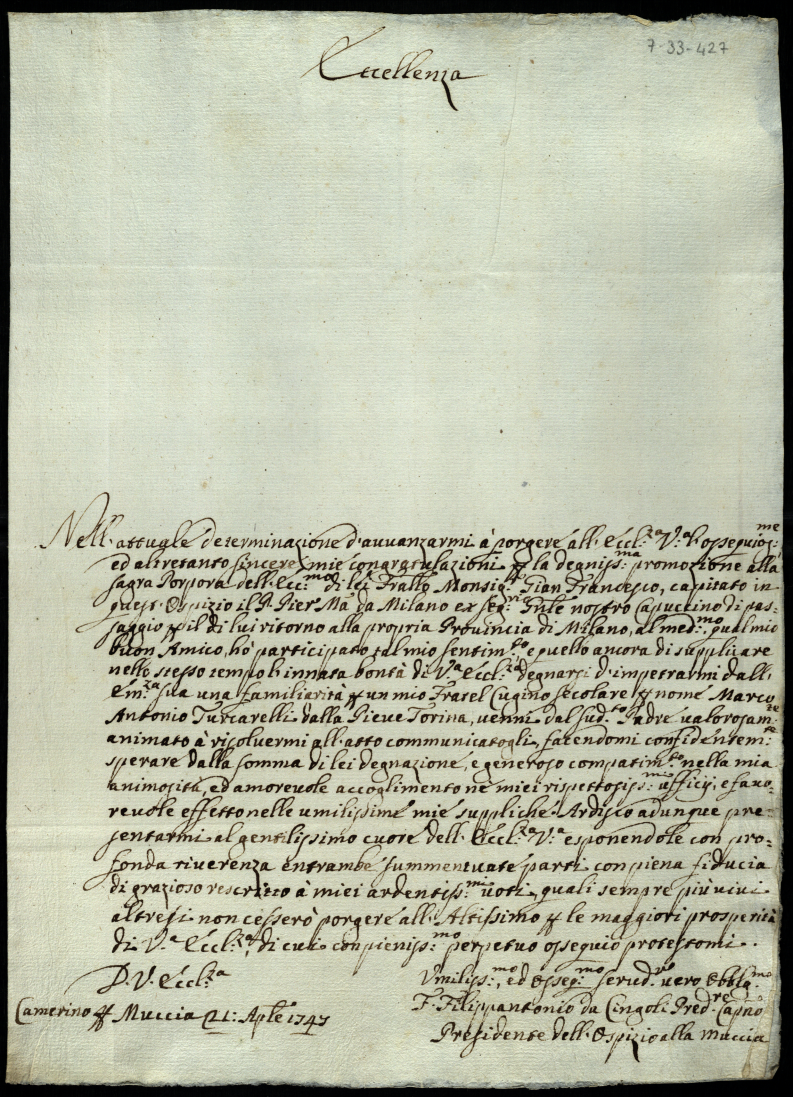 7-33-427
Eccellenza
Nell'attuale determinazione d'avvanzarmi à porgere all'Eccl:za V:a l'ossequios:me
ed altretanto sincere mie congratulazioni per la degniss:ma promozione alla
sagra Porpora dell'Ecc:mo di lei Frallo Monsig:r Gian Francesco, capitato in
quest'Ospizio il P. Pier Ma da Milano ex seg:rio Gnle nostro Capuccino di pas-
saggio per il di lui ritorno alla propria Provincia di Milano, al med:mo, qual mio
buon Amico, hò participato tal mio sentim:to, e quello ancora di supplicare
nello stesso tempo l'innata bontà di V:a Eccl:za degnarsi d'impetrarmi dall'
Em:za sua una familiarità per un mio Fratel Cugino secolare per nome Marco
Antonio Turcarelli dalla Pieve Torina, venni dal sud:to Padre valorosam:te
animato à risolvermi all'atto communicatogli, facendomi confidentem:te
sperare dalla somma di lei degnazione, e generoso compatim:to nella mia
animosità, ed amorevole accoglimento ne miei rispettosiss:mi ufficij, e favo=
revole effetto nelle umilissime mie suppliche. Ardisco adunque pre=
sentarmi al gentilissimo cuore dell'Eccl:za V:a esponendole con pro=
fonda riverenza entrambe summentuate parti con piena fiducia
di grazioso rescritto à miei ardentiss:mi voti, quali sempre più vivi
altresi non cesserò porgere all'Altissimo per le maggiori prosperità
di V:a Eccl:za, di cui con pieniss:mo perpetuo ossequio protestomi.
D. V. Eccl:za
Umiliss:mo, ed Osseq:mo servd:re vero Obblg:mo
Camerino per Muccia 21: Aple 1747
F. Filippantonio da Cingoli Pred:re Capno
Presidente dell'Ospizio alla Muccia